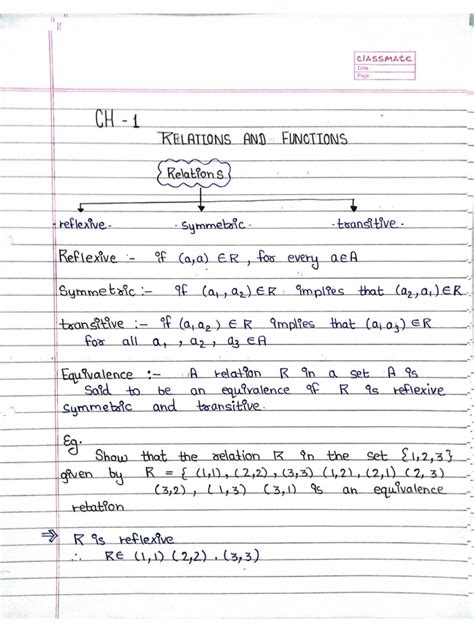 classmate
Date
Page
CH - 1
RELATIONS AND FUNCTIONS
Relations
reflexive. symmetric. transitive.
Reflexive :- if (a,a) ∈R, for every a∈A
Symmetric :- if (a₁,a₂) ∈R implies that (a₂,a₁)∈R
transitive :- if (a₁a₂) ∈ R implies that (a₁a₃)∈R
for all a₁, a₂, a₃ ∈A
Equivalence :- A relation R in a set A is
Said to be an equivalence if R is reflexive
symmetric and transitive.
Eg.
Show that the relation R in the set {1,2,3}
given by R = { (1,1), (2,2), (3,3) (1,2), (2,1) (2,3)
(3,2), (1,3) (3,1) is an equivalence
retation
⇒ R is reflexive
∴ R∈ (1,1) (2,2). (3,3)